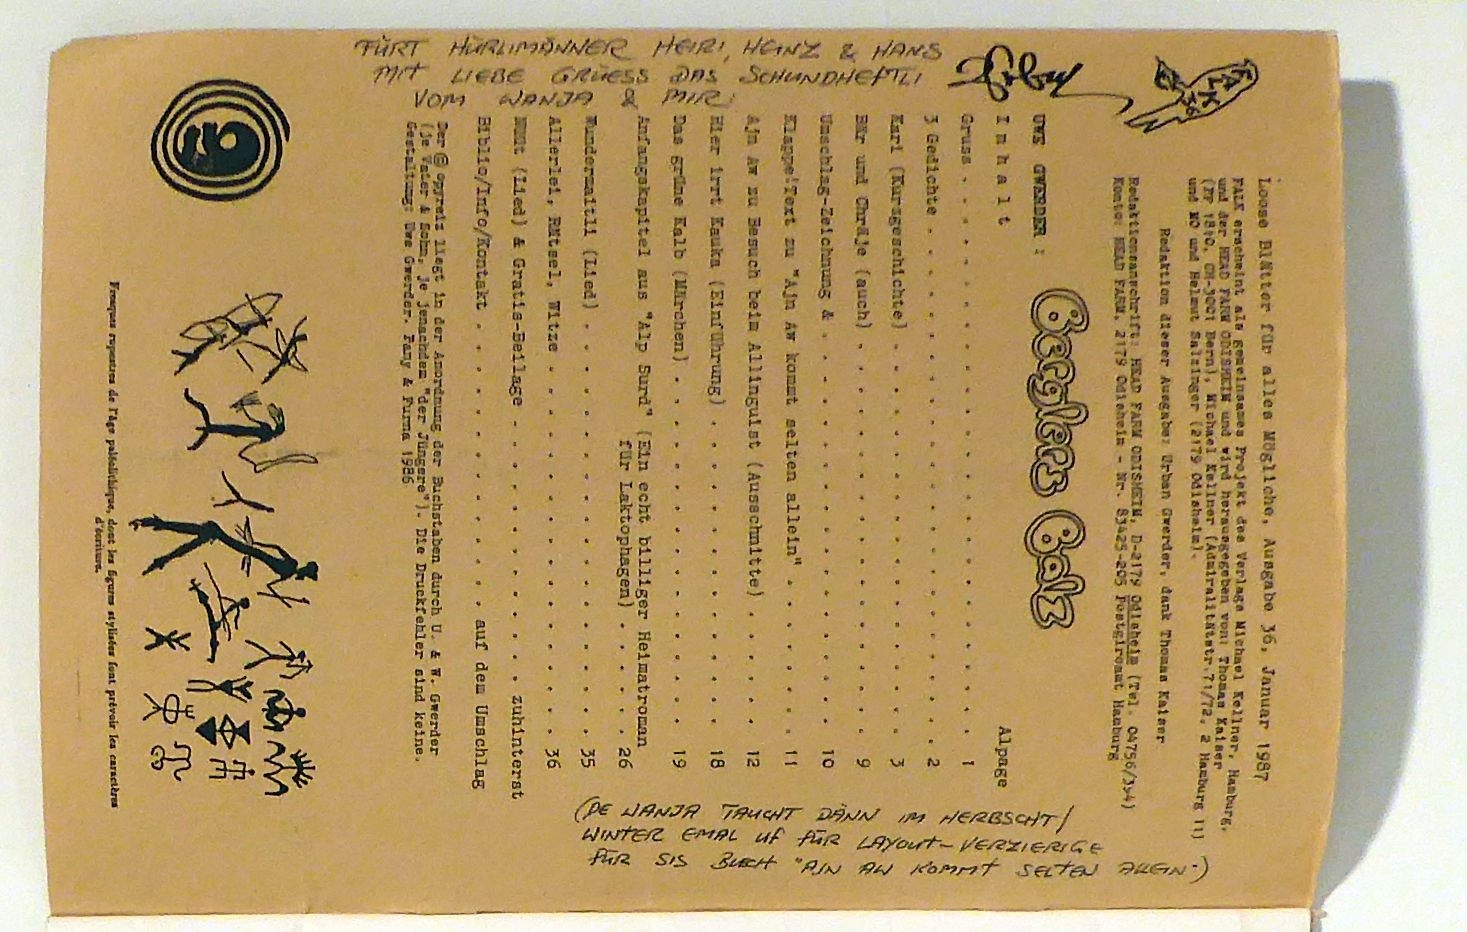 FÜRT HÜRLIMÄNNER HEIRI, HEINZ & HANS
MIT LIEBE GRÜESS DAS SCHUNDHEFTLI
VOM WANJA & MIR:
FALK
36
Loose Blätter für alles Mögliche, Ausgabe 36, Januar 1987
FALK erscheint als gemeinsames Projekt des Verlags Michael Kellner, Hamburg,
und der HEAD FARM ODISHEIM und wird herausgegeben von: Thomas Kaiser
(PF 1840, CH-3001 Bern), Michael Kellner (Admiralitätstr.71/72, 2 Hamburg 11)
und MO und Helmut Salzinger (2179 Odisheim).
Redaktion dieser Ausgabe: Urban Gwerder, dank Thomas Kaiser
Redaktionsanschrift: HEAD FARM ODISHEIM, D-2179 Odisheim (Tel. 04756/394)
Konto: HEAD FARM, 2179 Odisheim - Nr. 83425-205 Postgiroamt Hamburg
UWE GWERDER :
Beeglers Balz
Inhalt Alpage
Gruss . . . 1
3 Gedichte . . . 2
Karl (Kurzgeschichte) . . . 3
Bär und Chräje (auch) . . . 9
Umschlag-Zeichnung & . . . 10
Klappe!Text zu "Ajn Aw kommt selten allein" . . . 11
Ajn Aw zu Besuch beim Allinguist (Ausschnitte) . . . 12
Hier irrt Kauka (Einführung) . . . 18
Das grüne Kalb (Märchen) . . . 19
Anfangskapitel aus "Alp Surd" (Ein echt billiger Heimatroman
für Laktophagen) . . . 26
Wundermaitli (Lied) . . . 35
Allerlei, Rätsel, Witze . . . 36
(Lied) & Gratis-Beilage . . . zuhinterst
Biblio/Info/Kontakt . . . auf dem Umschlag
Der © oppreiz liegt in der Anordnung der Buchstaben durch U. & W. Gwerder
(je Vater & Sohn, je jenachdem "der Jüngere"). Die Druckfehler sind keine.
Gestaltung: Uwe Gwerder. Pany & Furna 1986
Fresques rupestres de l'âge paléolithique, dont les figures stylisées font prévoir les caractères
d'écriture.
(DE WANJA TAUCHT DÄNN IM HERBSCHT/
WINTER EMAL UF FÜR LAYOUT-VERZIERIGE
FÜR SIS BUECH "AJN AW KOMMT SELTEN ALLEIN".)